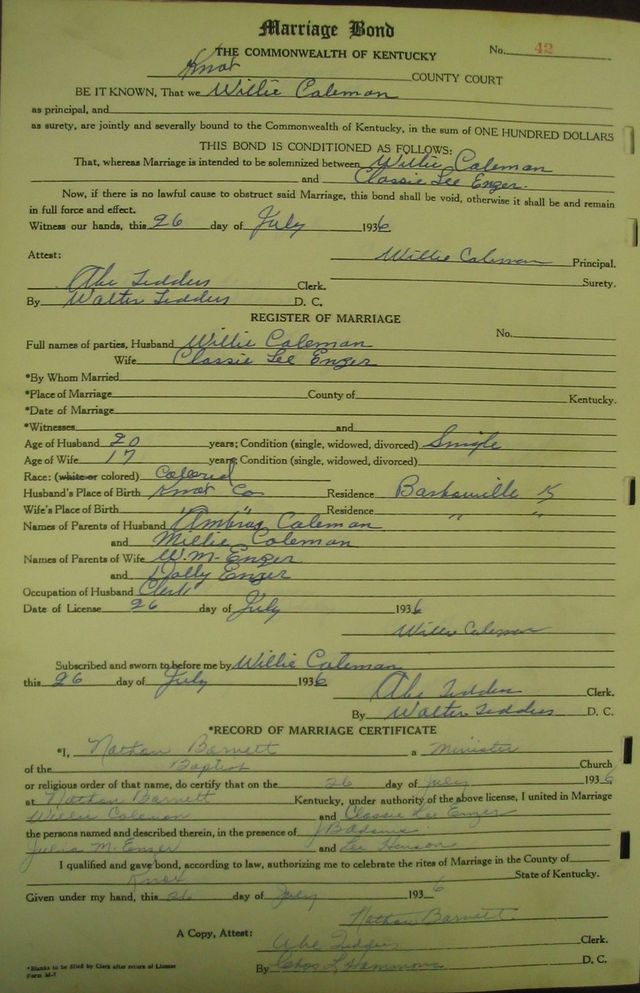 Marriage Bond
THE COMMONWEALTH OF KENTUCKY
No. 42
Knox COUNTY COURT
BE IT KNOWN, That we Willie Coleman
as principal, and
as surety, are jointly and severally bound to the Commonwealth of Kentucky, in the sum of ONE HUNDRED DOLLARS
THIS BOND IS CONDITIONED AS FOLLOWS:
That, whereas Marriage is intended to be solemnized between Willie Coleman
and Classie Lee Enzer.
Now, if there is no lawful cause to obstruct said Marriage, this bond shall be void, otherwise it shall be and remain
in full force and effect.
Witness our hands, this 26 day of July 1936
Willie Coleman Principal.
Attest:
Surety.
Abe Tedders Clerk.
By Walter Tedders D. C.
REGISTER OF MARRIAGE
No.
Full names of parties, Husband Willie Coleman
Wife Classie Lee Enzer
*By Whom Married
*Place of Marriage County of Kentucky.
*Date of Marriage
*Witnesses and
Age of Husband 20 years; Condition (single, widowed, divorced) Single
Age of Wife 17 years; Condition (single, widowed, divorced)
Race: (white or colored) Colored
Husband's Place of Birth Knox Co Residence Barbourville K
Wife's Place of Birth " " Residence " "
Names of Parents of Husband Ambras Coleman
and Millie Coleman
Names of Parents of Wife W.M. Enzer
and Dolly Enzer
Occupation of Husband Clerk
Date of License 26 day of July 1936
Willie Coleman
Subscribed and sworn to before me by Willie Coleman
this 26 day of July 1936
Abe Tedders Clerk.
By Walter Tedders D. C.
*RECORD OF MARRIAGE CERTIFICATE
*I, Nathan Barnett a Minister
of the Baptist Church
or religious order of that name, do certify that on the 26 day of July 1936
at Nathan Barnett Kentucky, under authority of the above license, I united in Marriage
Willie Coleman and Classie Lee Enzer
the persons named and described therein, in the presence of J B Adams
Julia M. Enzer and Lee Henson
I qualified and gave bond, according to law, authorizing me to celebrate the rites of Marriage in the County of
Knox State of Kentucky.
Given under my hand, this 26 day of July 1936
Nathan Barnett
A Copy, Attest: Abe Tedders Clerk.
By Chas L Hammons D. C.
*Blanks to be filled by Clerk after return of License
Form M-7